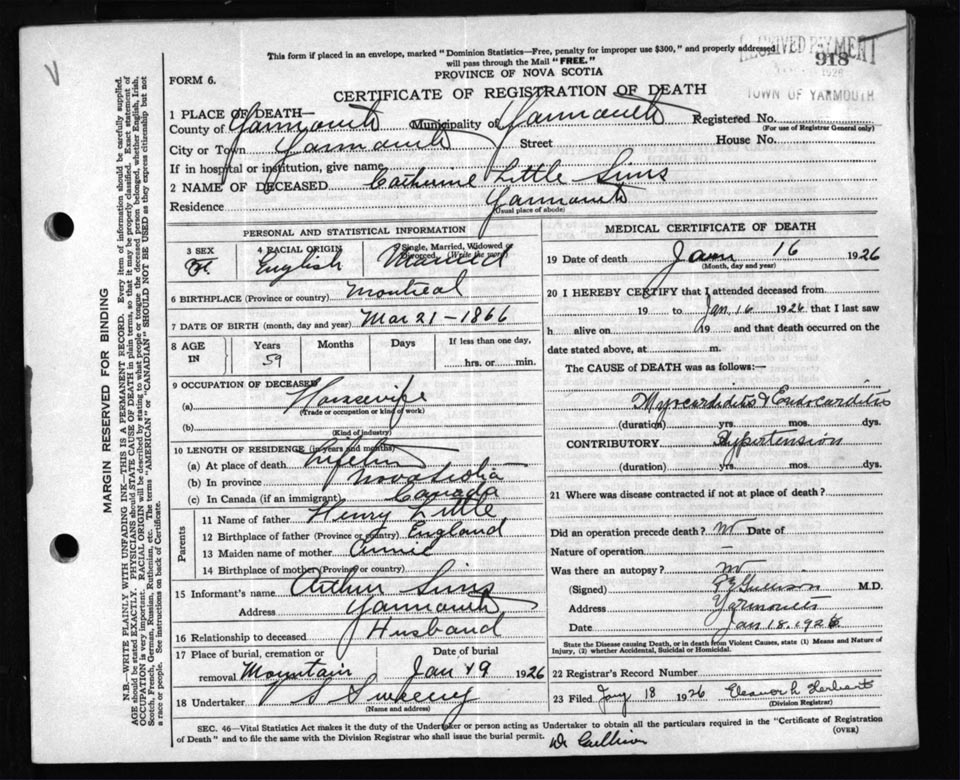 This form if placed in an envelope, marked "Dominion Statistics—Free, penalty for improper use $300," and properly addressed
will pass through the Mail "FREE."
PROVINCE OF NOVA SCOTIA
FORM 6.
CERTIFICATE OF REGISTRATION OF DEATH
918
1926
TOWN OF YARMOUTH
1 PLACE OF DEATH—
County of Yarmouth Municipality of Yarmouth Registered No.
(For use of Registrar General only)
City or Town Yarmouth Street House No.
If in hospital or institution, give name
2 NAME OF DECEASED Catherine Little Sims
Residence Yarmouth
(Usual place of abode)
PERSONAL AND STATISTICAL INFORMATION
3 SEX 4 RACIAL ORIGIN 5 Single, Married, Widowed or Divorced (Write the word)
F. English Married
6 BIRTHPLACE (Province or country) Montreal
7 DATE OF BIRTH (month, day and year) Mar 21 - 1866
8 AGE IN Years Months Days If less than one day,
59 hrs. or min.
9 OCCUPATION OF DECEASED
(a) Housewife
(Trade or occupation or kind of work)
(b)
(Kind of industry)
10 LENGTH OF RESIDENCE (in years and months)
(a) At place of death Lifetime
(b) In province Nova Scotia
(c) In Canada (if an immigrant) Canada
Parents
11 Name of father Henry Little
12 Birthplace of father (Province or country) England
13 Maiden name of mother Annie
14 Birthplace of mother (Province or country)
15 Informant's name Arthur Sims
Address Yarmouth
16 Relationship to deceased Husband
17 Place of burial, cremation or removal Date of burial
Mountain Jan 19 1926
18 Undertaker S Sweeny
(Name and address)
MEDICAL CERTIFICATE OF DEATH
19 Date of death Jan 16 1926
(Month, day and year)
20 I HEREBY CERTIFY that I attended deceased from
19 to Jan. 16 1926 that I last saw
h alive on 19 and that death occurred on the
date stated above, at m.
The CAUSE of DEATH was as follows:—
Myocarditis & Endocarditis
(duration) yrs. mos. dys.
CONTRIBUTORY Hypertension
(duration) yrs. mos. dys.
21 Where was disease contracted if not at place of death?
Did an operation precede death? no Date of
Nature of operation —
Was there an autopsy? no
(Signed) M.D.
Address Yarmouth
Date Jan 18. 1926
State the Disease causing Death, or in death from Violent Causes, state (1) Means and Nature of
Injury, (2) whether Accidental, Suicidal or Homicidal.
22 Registrar's Record Number
23 Filed Jany 18 1926 Eleanor L Herbert
(Division Registrar)
SEC. 46—Vital Statistics Act makes it the duty of the Undertaker or person acting as Undertaker to obtain all the particulars required in the "Certificate of Registration
of Death" and to file the same with the Division Registrar who shall issue the burial permit.
(OVER)
MARGIN RESERVED FOR BINDING
N.B.—WRITE PLAINLY WITH UNFADING INK—THIS IS A PERMANENT RECORD. Every item of information should be carefully supplied.
AGE should be stated EXACTLY. PHYSICIANS should STATE CAUSE OF DEATH in plain terms, so that it may be properly classified. Exact statement of
OCCUPATION is very important. RACIAL ORIGIN will be described by stating to what people or tongue the deceased person belonged, whether English, Irish,
Scotch, French, German, Russian, Ruthenian, etc. The terms "AMERICAN" or "CANADIAN" SHOULD NOT BE USED as they express citizenship but not
a race or people. See instructions on back of Certificate.